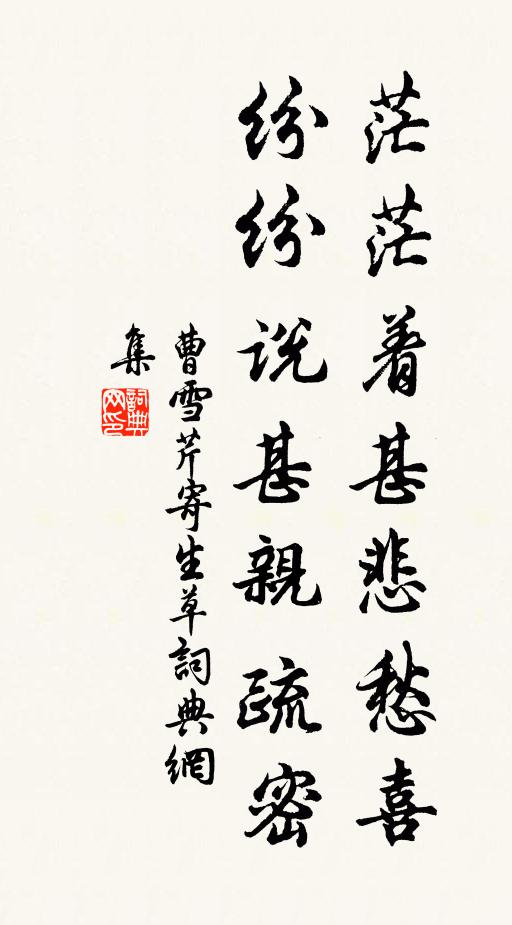 茫茫着甚悲愁喜
纷纷说甚親疏密
曹雪芹寄生草詞典網
集
詞典
网印